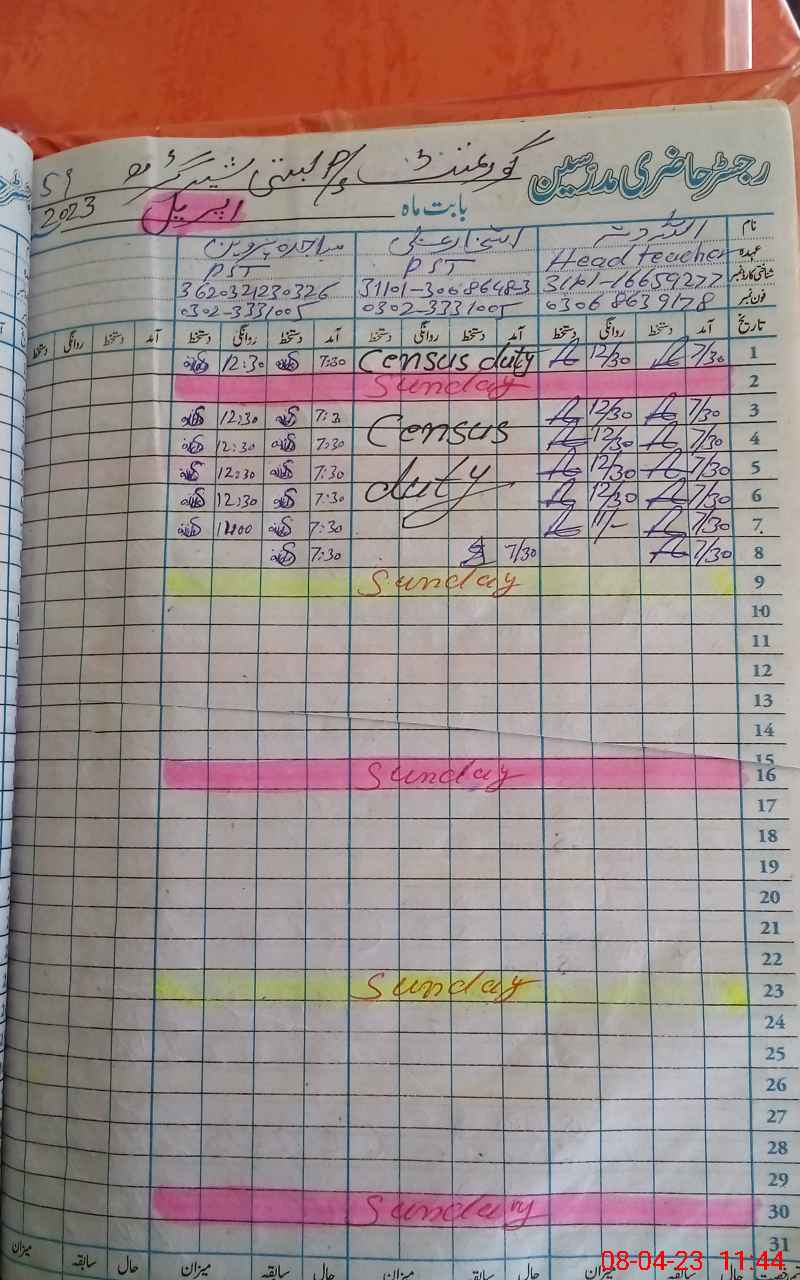 رجسٹر حاضری مدرسین گورنمنٹ P/S بستی شیر گڑھ 59
بابت ماہ اپریل 2023
نام
عہدہ Head teacher PST PST
شناختی کارڈ نمبر 31101-16659277 31101-3068648-3 3620321230326
فون نمبر 0306 8639178 0302-3331005 0302-3331005
تاریخ آمد دستخط روانگی دستخط آمد دستخط روانگی دستخط آمد دستخط روانگی دستخط آمد دستخط روانگی دستخط
1 7/30 12/30 Census duty 7:30 12:30
2 Sunday
3 7/30 12/30 Census 7:30 12:30
4 7/30 12/30 7:30 12:30
5 7/30 12/30 duty 7:30 12:30
6 7/30 12/30 7:30 12:30
7 7/30 11/- 7:30 11:00
8 7/30 7/30 7:30
9 Sunday
10
11
12
13
14
15
16 Sunday
17
18
19
20
21
22
23 Sunday
24
25
26
27
28
29
30 Sunday
31
حال سابقہ میزان حال سابقہ میزان حال سابقہ میزان
08-04-23 11:44